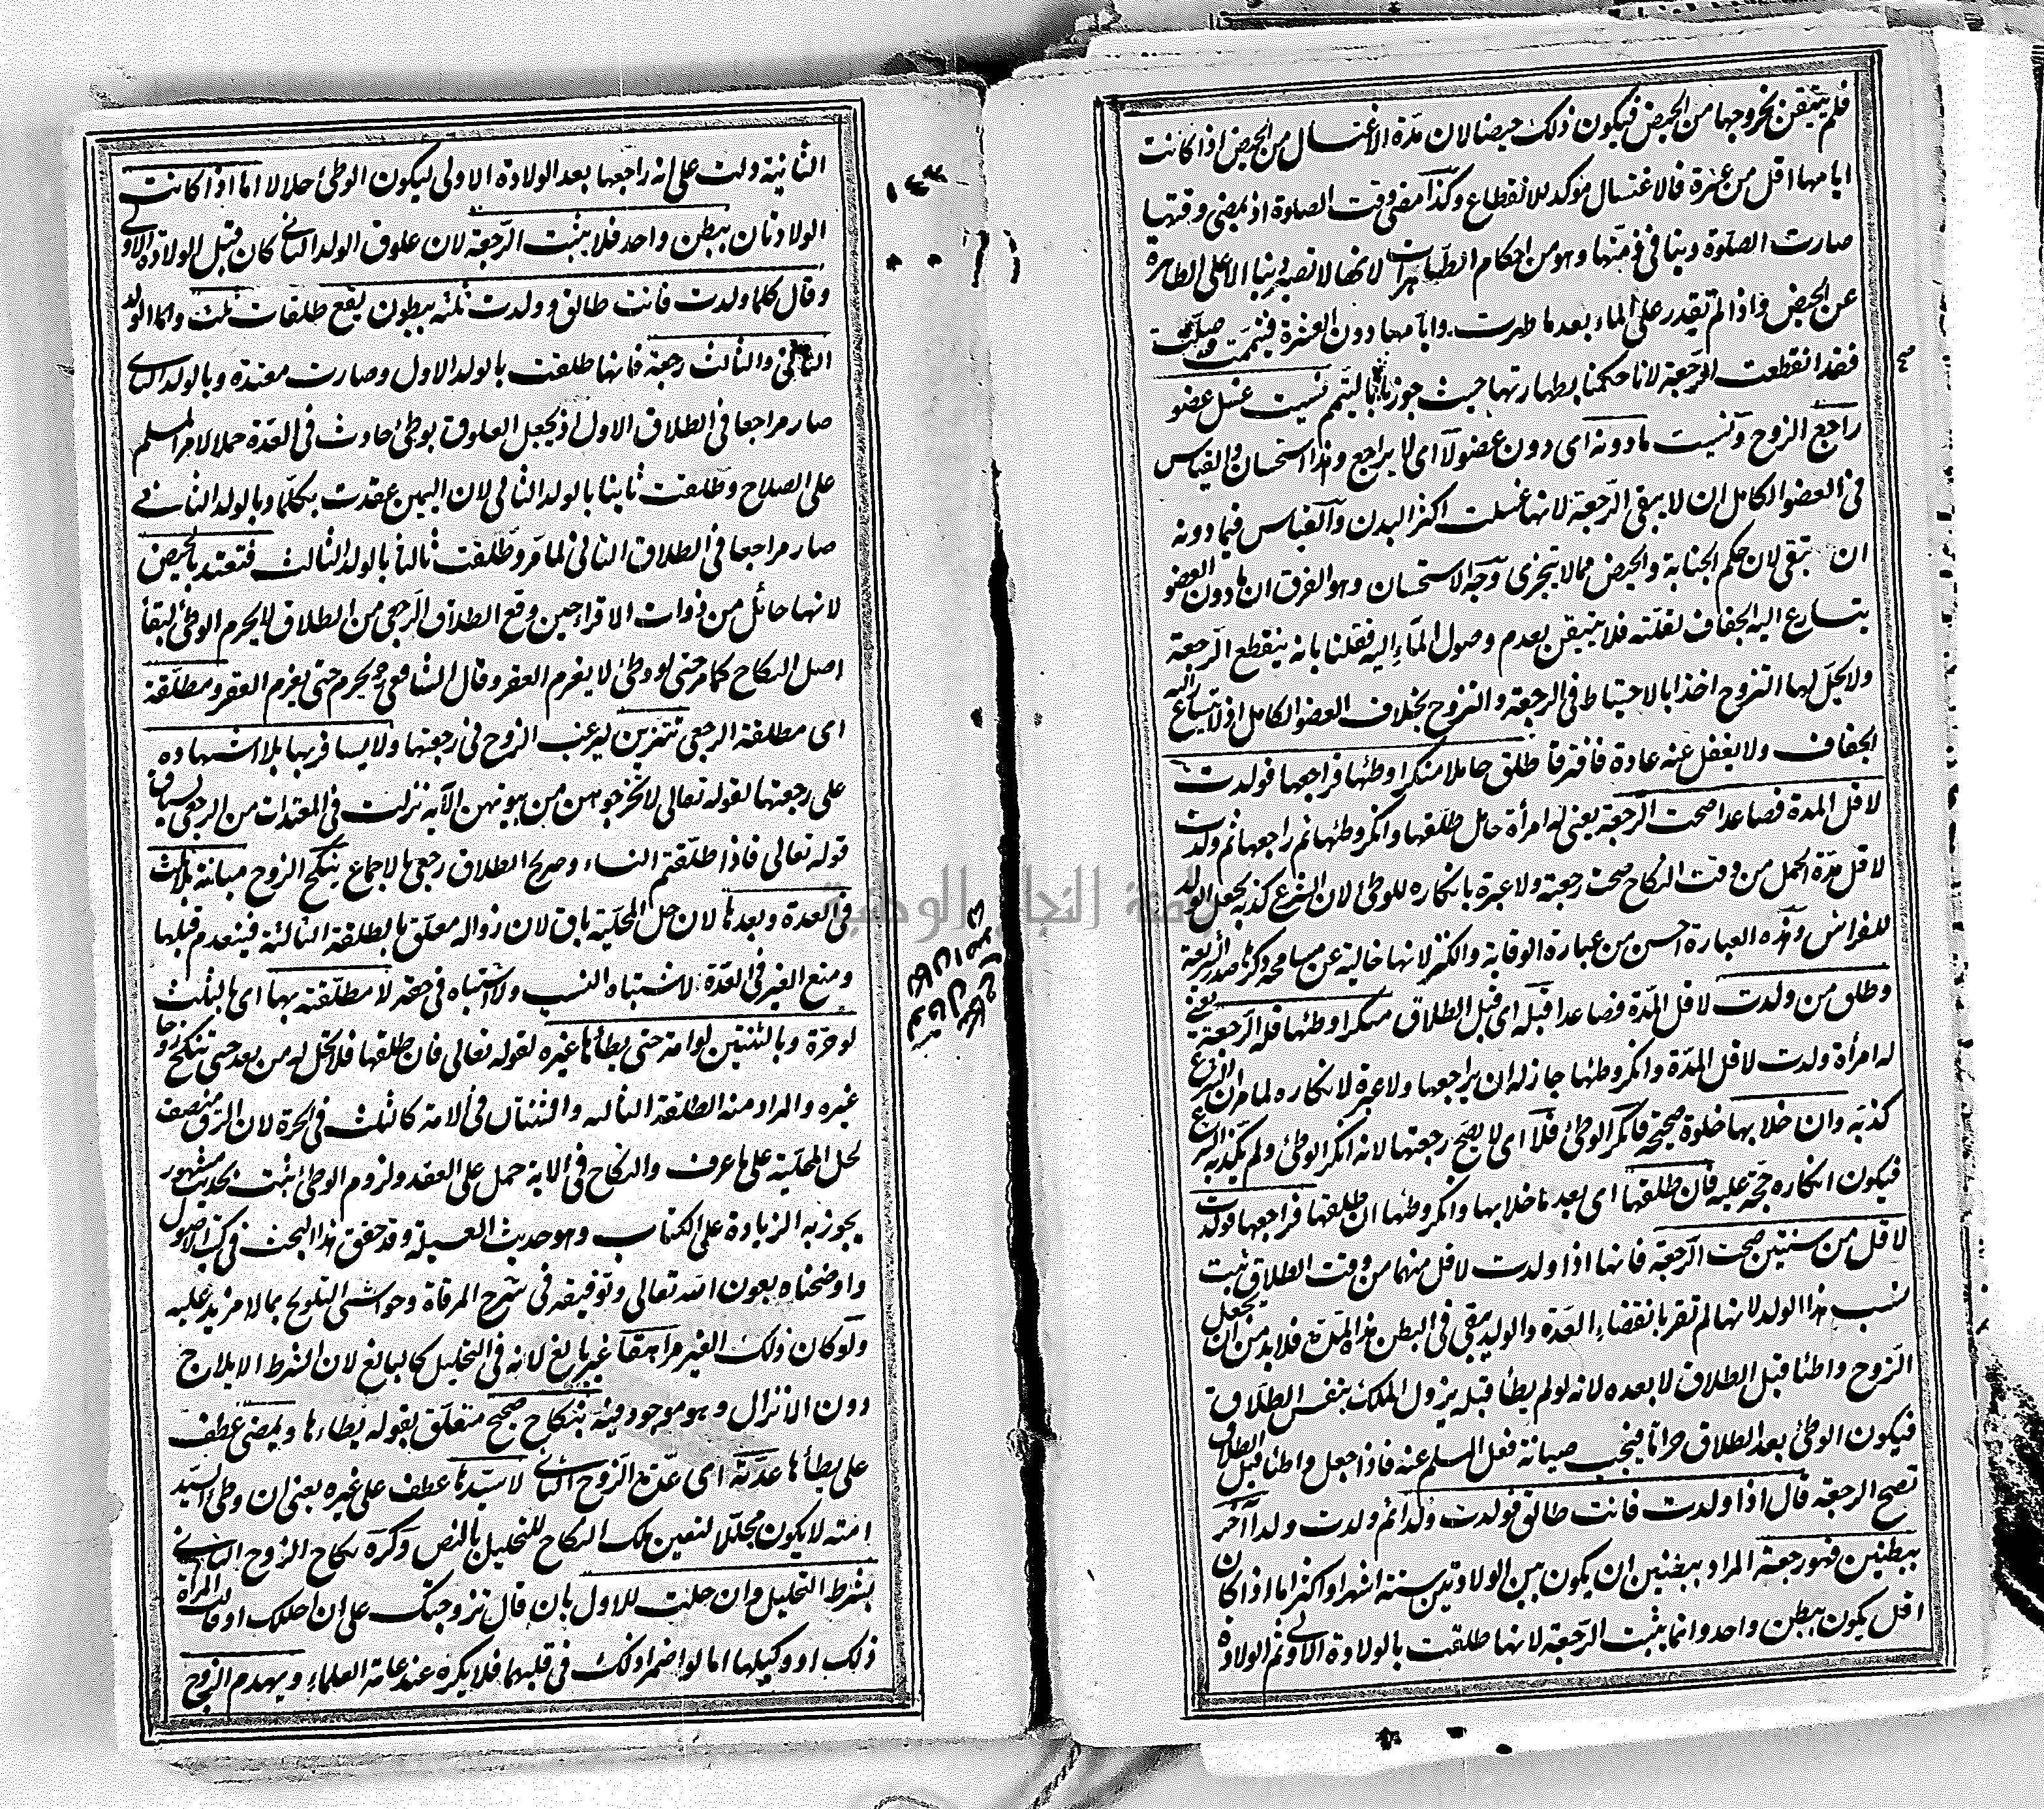 فلم يتيقن بخروجها من الحيض فيكون ذلك حيضا لان مدة الاغتسال من الحيض اذا كانت
ايامها اقل من عشرة فالاغتسال مؤكد للانقطاع وكذا مضى وقت الصلوة اذ بمضى وقتها
صارت الصلوة دينا فى ذمتها وهو من احكام الطاهرات لانها لا تصير دينا الا على الطاهرة
عن الحيض واذا لم تقدر على الماء بعد ما طهرت وايامها دون العشرة فتيممت وصلت
فقد انقطعت الرجعة لانا حكمنا بطهارتها حيث جوزنا بالتيمم نسيت غسل عضو
راجع الزوج ونسيت ما دونه اى دون عضو لا اى لا يراجع وهذا استحسان والقياس
فى العضو الكامل ان لا يبقى الرجعة لانها غسلت اكثر البدن والقياس فيما دونه
ان تبقى لان حكم الجنابة والحيض مما لا يتجزى وجه الاستحسان وهو الفرق ان ما دون العضو
يتسارع اليه الجفاف لقلته فلا يتيقن بعدم وصول الماء اليه فقلنا بانه ينقطع الرجعة
ولا يحل لها التزوج اخذا بالاحتياط فى الرجعة والتزوج بخلاف العضو الكامل اذ لا يتسارع اليه
الجفاف ولا يغفل عنه عادة فافترقا طلق حاملا منكرا وطئها فراجعها فولدت
لاقل المدة فصاعدا صحت الرجعة يعنى له امرأة حامل طلقها وانكر وطئها ثم راجعها ثم ولدت
لاقل مدة الحمل من وقت النكاح صحت رجعته ولا عبرة بانكاره للوطئ لان الشرع كذبه بجعل الولد
للفراش وهذه العبارة احسن من عبارة الوقاية والكنز لانها خالية عن مسامحة ذكرها صدر الشريعة
وطلق من ولدت لاقل المدة فصاعدا قبله اى قبل الطلاق منكرا وطئها فله الرجعة يعنى
له امرأة ولدت لاقل المدة وانكر وطئها جاز له ان يراجعها ولا عبرة لانكاره لما مر ان الشرع
كذبه وان خلا بها خلوة صحيحة فانكر الوطئ فلا اى لا يصح رجعتها لانه انكر الوطئ ولم يكذبه الشرع
فيكون انكاره حجة عليه فان طلقها اى بعد ما خلا بها وانكر وطئها ان طلقها فراجعها فولدت
لاقل من سنتين صحت الرجعة فانها اذا ولدت لاقل منهما من وقت الطلاق ثبت
نسب هذا الولد لانها لم تقر بانقضاء العدة والولد يبقى فى البطن هذه المدة فلا بد من ان يجعل
الزوج واطئا قبل الطلاق لا بعده لانه لو لم يطأ قبله يزول الملك بنفس الطلاق
فيكون الوطئ بعد الطلاق حراما فيجب صيانة فعل المسلم عنه فاذا جعل واطئا قبل الطلاق
تصح الرجعة قال اذا ولدت فانت طالق فولدت ولدا ثم ولدت ولدا آخر
ببطنين فهو رجعة المراد ببطنين ان يكون بين الولادتين ستة اشهر او اكثر اما اذا كان
اقل يكون ببطن واحد وانما يثبت الرجعة لانها طلقت بالولادة الاولى ثم الولادة
صح
الثانية دلت على انه راجعها بعد الولادة الاولى ليكون الوطئ حلالا اما اذا كانت
الولادتان ببطن واحد فلا يثبت الرجعة لان علوق الولد الثانى كان قبل الولادة الاولى
وقال كلما ولدت فانت طالق وولدت ثلثة ببطون يقع طلقات ثلث واما الولد
الثانى والثالث رجعة فانها طلقت بالولد الاول وصارت معتدة وبالولد الثانى
صار مراجعا فى الطلاق الاول اذ يجعل العلوق بوطئ حادث فى العدة حملا لامر المسلم
على الصلاح وطلقت ثانيا بالولد الثانى لان اليمين عقدت بكلما وبالولد الثانى
صار مراجعا فى الطلاق الثانى لما مر وطلقت ثالثا بالولد الثالث فتعتد بالحيض
لانها حائل من ذوات الاقراء حين وقع الطلاق الرجعى من الطلاق لا يحرم الوطئ لبقاء
اصل النكاح كما مر حتى لو وطئ لا يغرم العقر وقال الشافعى رح يحرم حتى يغرم العقر ومطلقة
اى مطلقة الرجعى تتزين ليرغب الزوج فى رجعتها ولا يسافر بها بلا اشهاده
على رجعتها لقوله تعالى لا تخرجوهن من بيوتهن الآية نزلت فى المعتدات من الرجعى لسياق
قوله تعالى فاذا طلقتم النساء وصريح الطلاق رجعى بالاجماع ينكح الزوج مبانته بلا ثلث
فى العدة وبعدها لان حل المحلية باق لان زواله معلق بالطلقة الثالثة فينعدم قبلها
ومنع الغير فى العدة لاشتباه النسب ولا اشتباه فى حقه لا مطلقته بها اى بالثلث
لو حرة وبالثنتين لو امة حتى يطأها غيره لقوله تعالى فان طلقها فلا تحل له من بعد حتى تنكح زوجا
غيره والمراد منه الطلقة الثالثة والثنتان فى الامة كالثلث فى الحرة لان الرق منصف
لحل المحلية على ما عرف والنكاح فى الاية حمل على العقد ولزوم الوطئ ثبت بحديث مشهور
يجوز به الزيادة على الكتاب وهو حديث العسيلة وقد حقق هذا البحث فى كتب الاصول
واوضحناه بعون الله تعالى وتوفيقه فى شرح المرقاة وحواشى التلويح بما لا مزيد عليه
ولو كان ذلك الغير مراهقا غير بالغ لانه فى التحليل كالبالغ لان الشرط الايلاج
دون الانزال وهو موجود فيه بنكاح صحيح متعلق بقوله يطاءها ويمضى عطف
على يطأها عدته اى عدة الزوج الثانى لا سيدها عطف على غيره يعنى ان وطى السيد
امته لا يكون محللا لتعين ملك النكاح للتحليل بالنص وكره نكاح الزوج الثانى
بشرط التحليل وان حلت للاول بان قال تزوجتك على ان احللك او قالت المرأة
ذلك او وكيلها اما لو اضمرا ذلك فى قلبهما فلا يكره عند عامة العلماء ويهدم الزوج